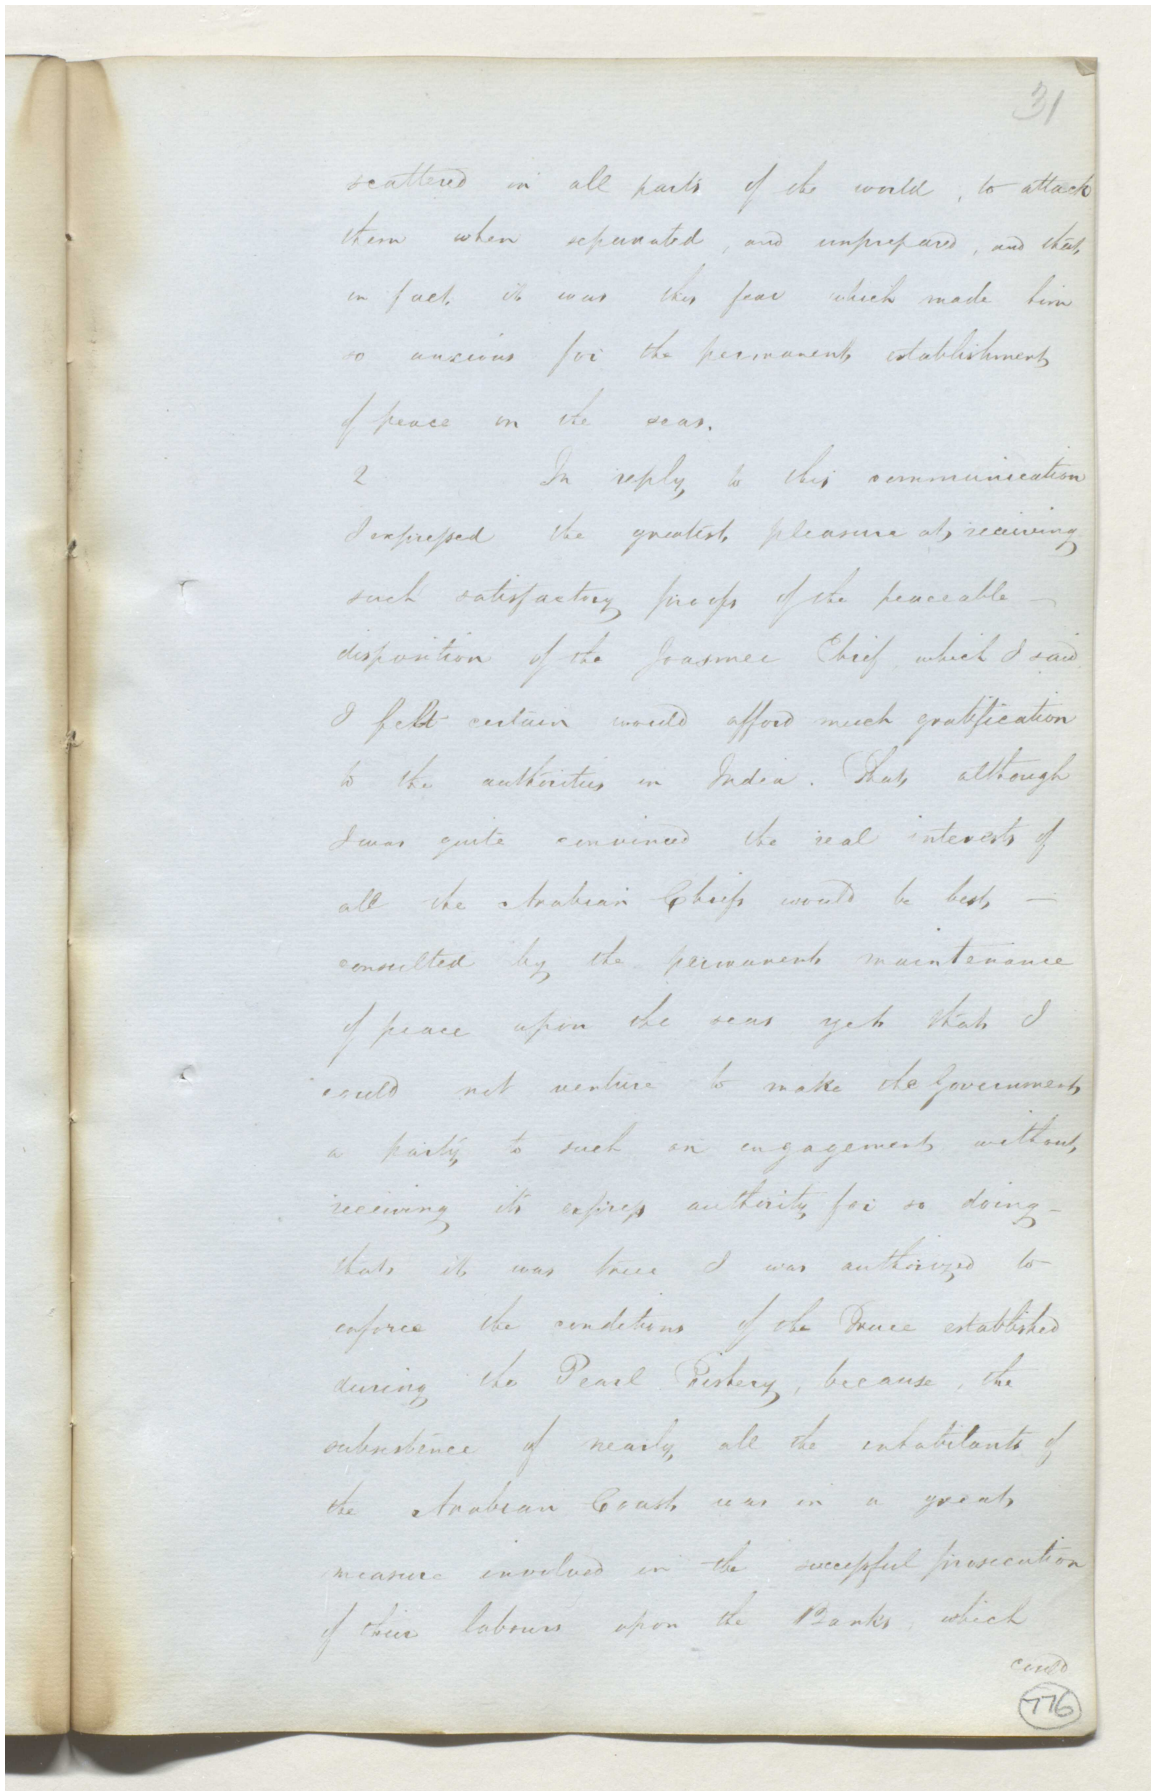 31
scattered in all parts of the world, to attack
them when separated, and unprepared, and that
in fact it was this fear which made him
so anxious for the permanent establishment
of peace on the seas.
2 In reply to this communication
I expressed the greatest pleasure at receiving
such satisfactory proofs of the peaceable
disposition of the Joasmee Chief which I said
I felt certain would afford much gratification
to the authorities in India. That although
I was quite convinced the real interests of
all the Arabian Chiefs would be best —
consulted by the permanent maintenance
of peace upon the seas yet that I
could not venture to make the Government
a party to such an engagement without
receiving its express authority for so doing —
that it was true I was authorized to
enforce the conditions of the Truce established
during the Pearl Fishery, because, the
subsistence of nearly all the inhabitants of
the Arabian Coast was in a great
measure involved in the successful prosecution
of their labours upon the Banks which
could
776